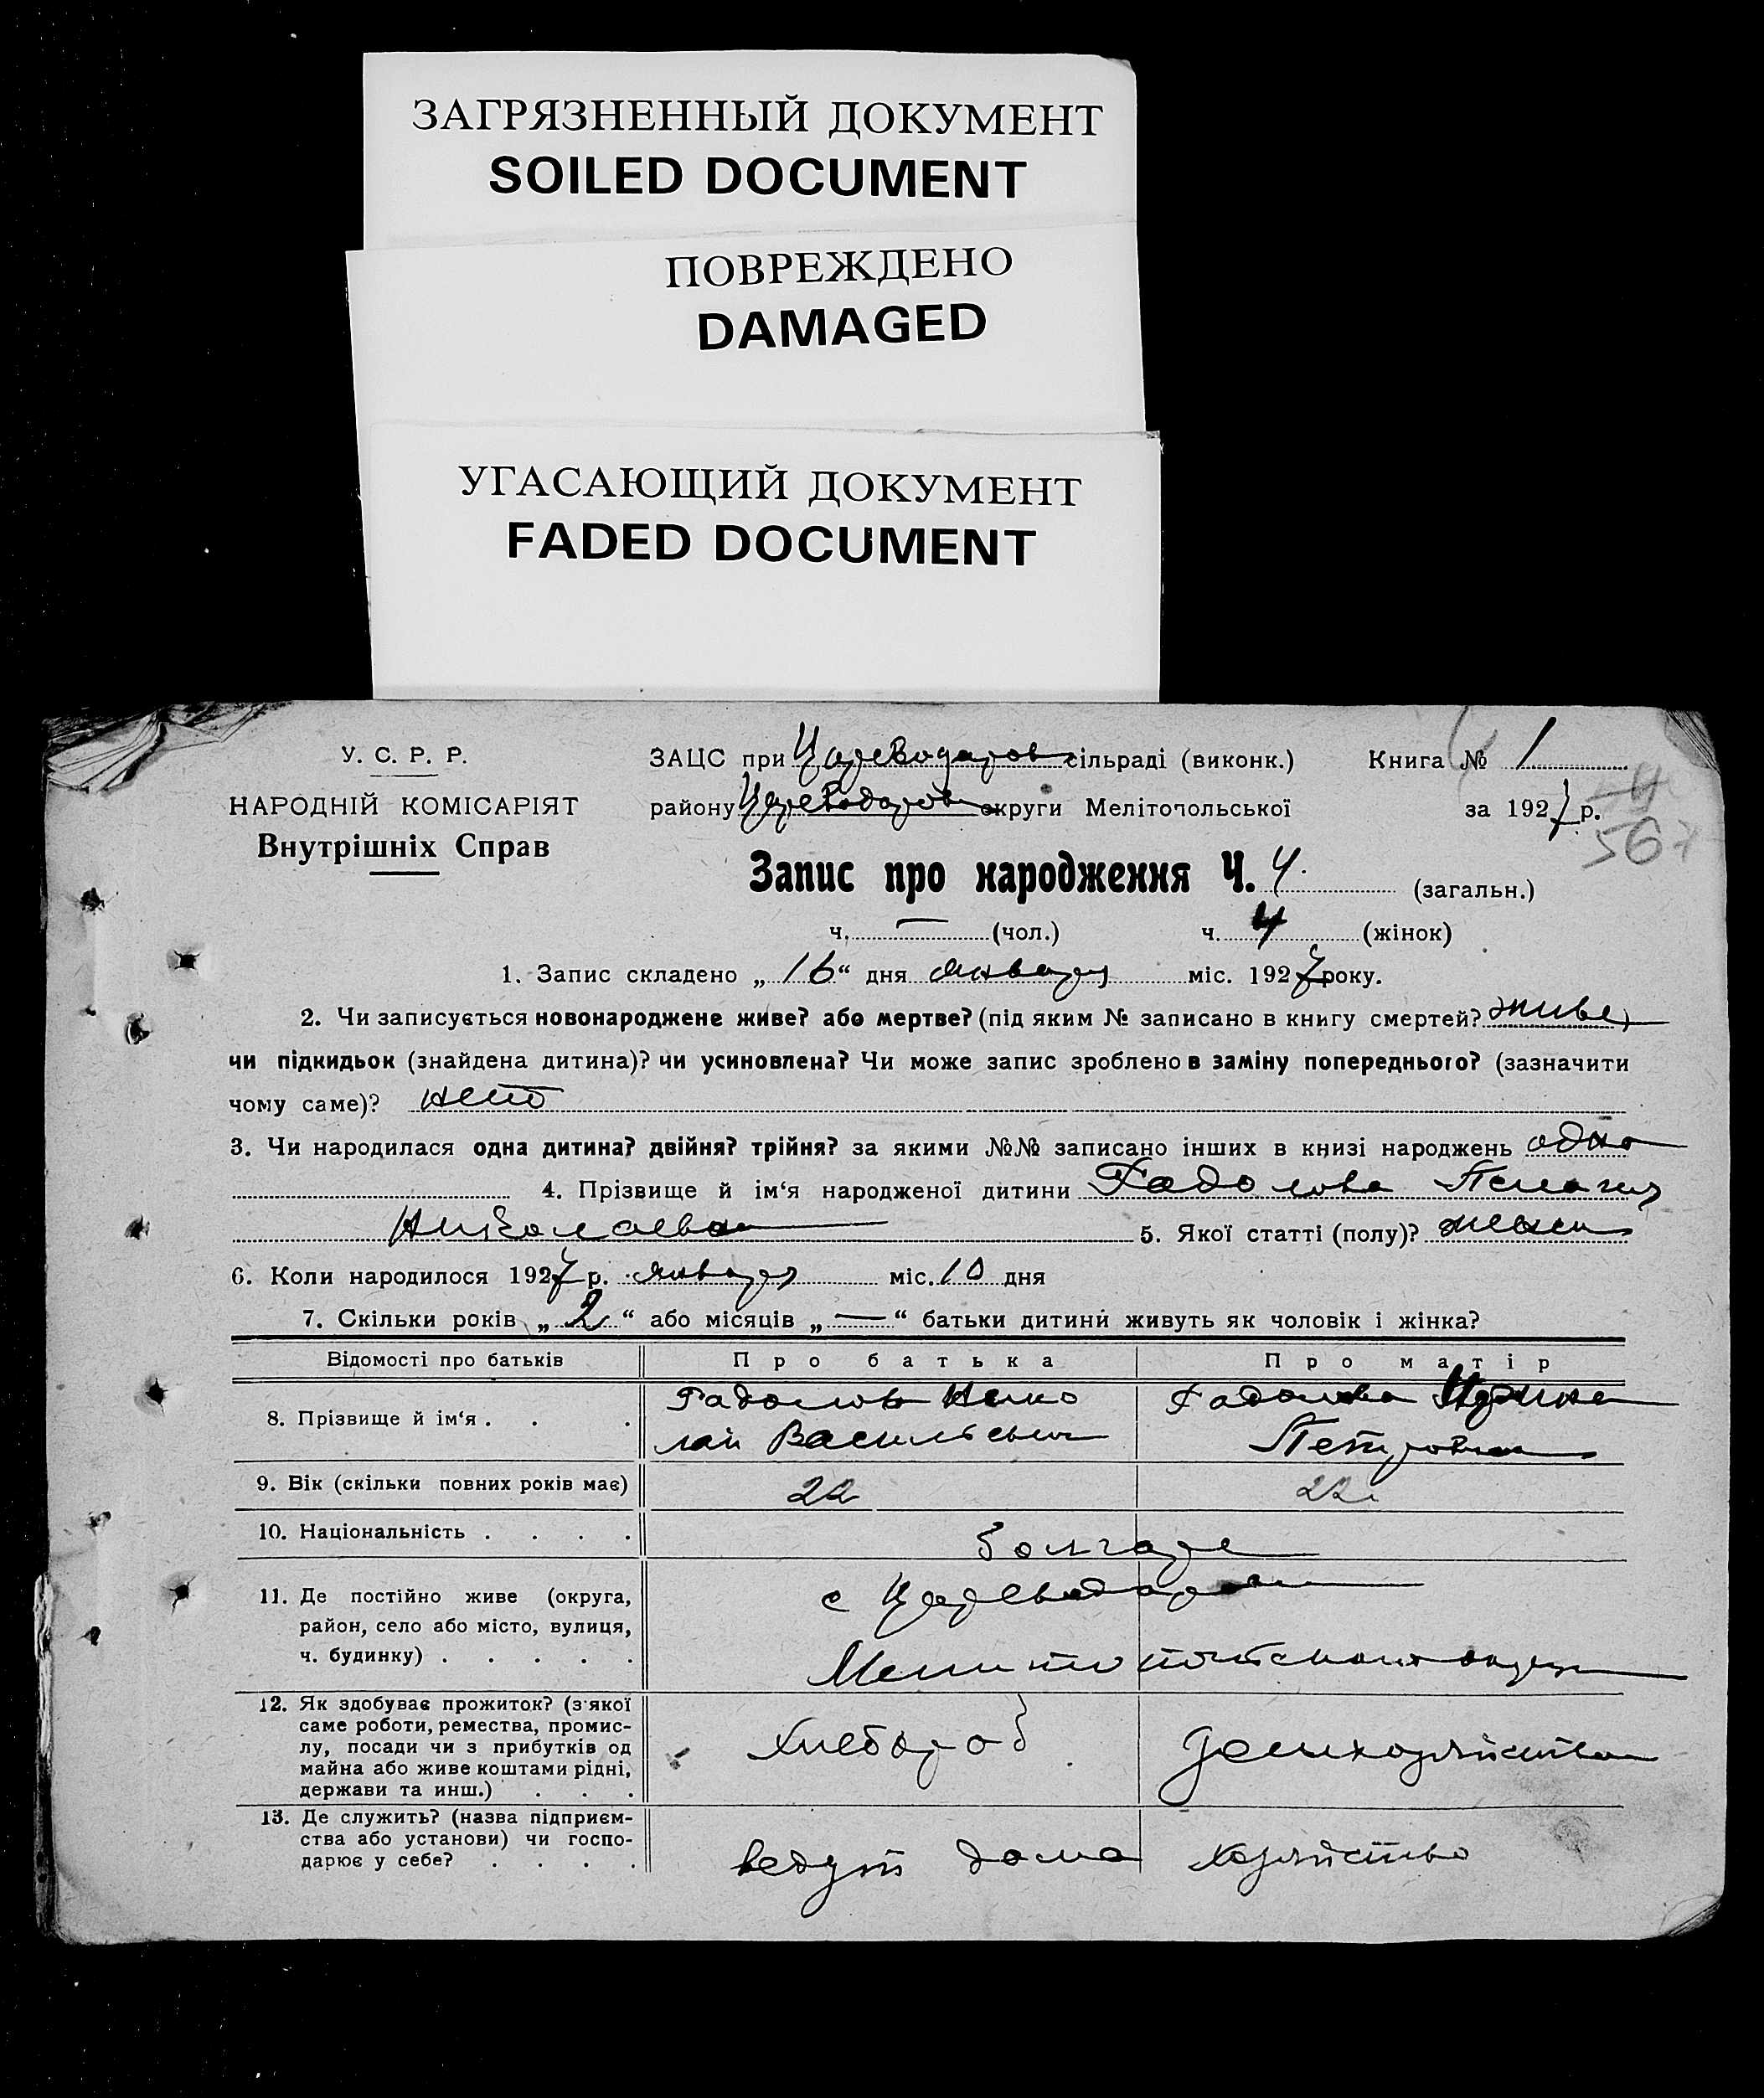 ЗАГРЯЗНЕННЫЙ ДОКУМЕНТ
SOILED DOCUMENT
ПОВРЕЖДЕНО
DAMAGED
УГАСАЮЩИЙ ДОКУМЕНТ
FADED DOCUMENT
У. С. Р. Р.
НАРОДНІЙ КОМІСАРІЯТ
Внутрішніх Справ
ЗАЦС при Цареводаров сільраді (виконк.) Книга № 1
району Цареводаров округи Мелітопольської за 1927 р.
567
Запис про народження Ч. 4. (загальн.)
ч. — (чол.) ч. 4 (жінок)
1. Запис складено „16“ дня января міс. 1927 року.
2. Чи записується новонароджене живе? або мертве? (під яким № записано в книгу смертей? живе)
чи підкидьок (знайдена дитина)? чи усиновлена? Чи може запис зроблено в заміну попереднього? (зазначити
чому саме)? нет
3. Чи народилася одна дитина? двійня? трійня? за якими №№ записано інших в книзі народжень одно
4. Прізвище й ім‘я народженої дитини Радолова Пелагия
Николаевна 5. Якої статті (полу)? женск
6. Коли народилося 1927 р. января міс. 10 дня
7. Скільки років „2“ або місяців „—“ батьки дитини живуть як чоловік і жінка?
Відомості про батьків Про батька Про матір
8. Прізвище й ім‘я . . . Радолов Нико Радолова Ирина
лай Васильевич Петровна
9. Вік (скільки повних років має) 22 22
10. Національність . . . . болгаре
11. Де постійно живе (округа, с Цареводаровка
район, село або місто, вулиця,
ч. будинку) . . . . . Мелитопольского округа
12. Як здобуває прожиток? (з якої
саме роботи, ремества, промис-
лу, посади чи з прибутків од хлебороб домхозяйства
майна або живе коштами рідні,
держави та инш.) . . .
13. Де служить? (назва підприєм-
ства або установи) чи госпо- ведут дома хозяйство
дарює у себе? . . . .